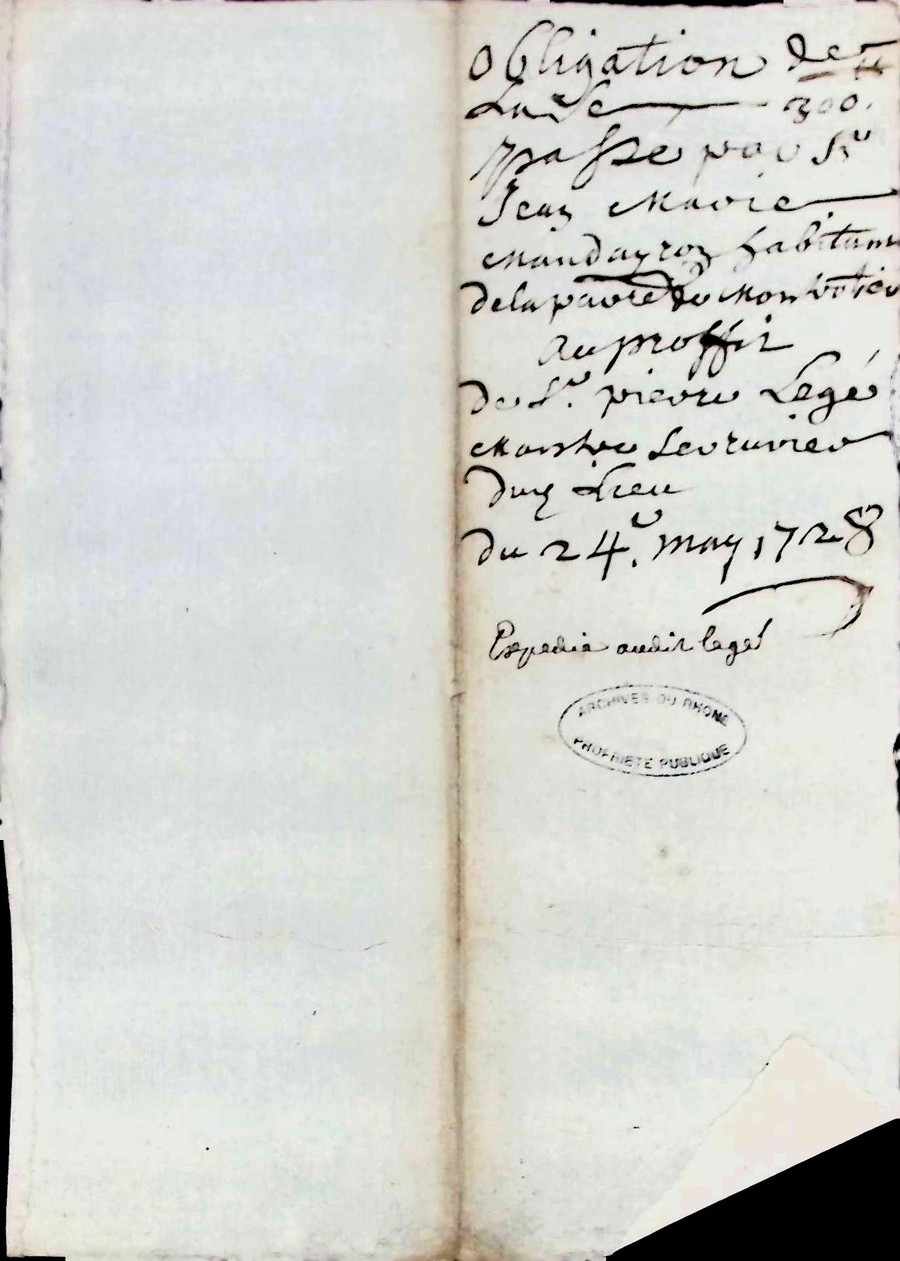 Obligation de
La Se 300#
passé par Sr
Jean Marie
Mandayron habitant
de la parre de Monbotier
Au proffit
de Sr. pierre Legé
Maistre Serrurier
dud Lieu
du 24e. may 1728
Expedie audit legé
ARCHIVES DU RHONE
PROPRIETE PUBLIQUE